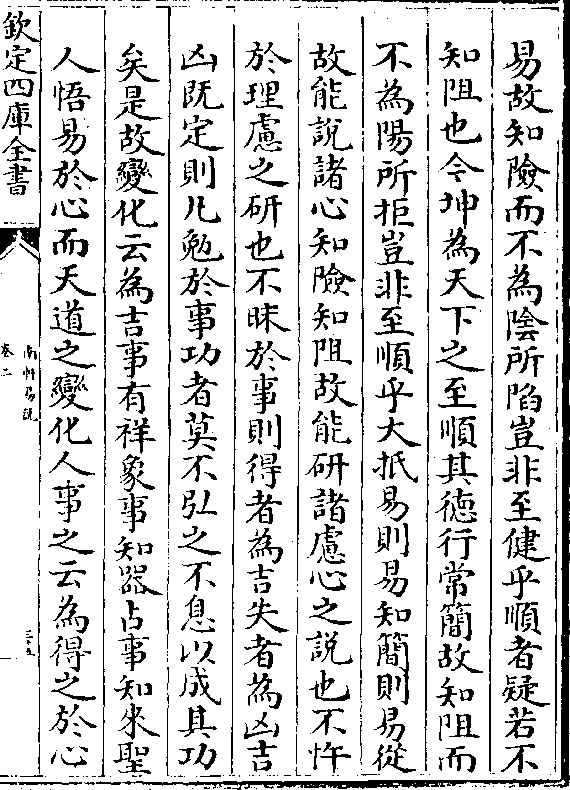 易故知險而不為陰所陷豈非至健乎順者疑若不
知阻也令坤為天下之至順其徳行常簡故知阻而
不為陽所拒豈非至順乎大抵易則易知簡則易從
故能說諸心知險知阻故能研諸慮心之說也不忤
於理慮之研也不昧於事則得者為吉失者為凶吉
凶既定則凡勉於事功者莫不弘之不息以成其功
矣是故變化云為吉事有祥象事知器占事知來聖
人悟易於心而天道之變化人事之云為得之於心
欽定四庫全書
南軒易說
卷二
三五